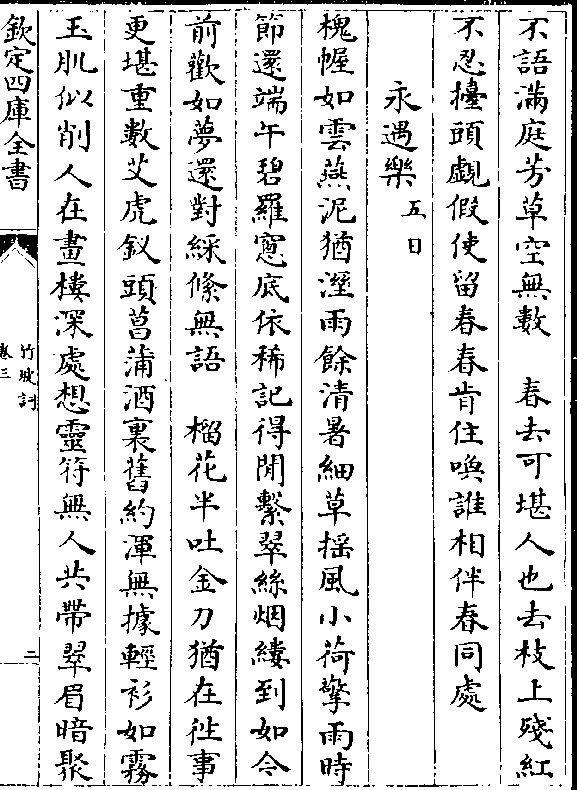 不語滿庭芳草空無數　春去可堪人也去枝上殘紅
不忍擡頭覷假使留春春肯住喚誰相伴春同處
永遇樂五日
槐幄如雲燕泥猶溼雨餘清暑細草揺風小荷擎雨時
節還端午碧羅窻底依稀記得閒繫翠絲烟縷到如今
前歡如夢還對綵絛無語　榴花半吐金刀猶在徃事
更堪重數艾虎釵頭菖蒲酒裏舊約渾無據輕衫如霧
玉肌似削人在畫樓深處想靈符無人共帶翠眉暗聚
欽定四庫全書
竹坡詞
卷三
二